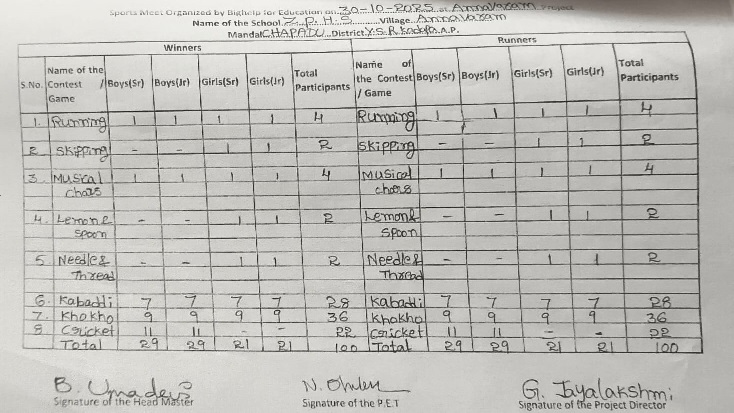 Sports Meet Organized by Bighelp for Education on 30-10-2025 at Annavaram Project
Name of the School Z.P.H.S Village Annavaram
Mandal CHAPADU District Y.S.R Kadapa A.P.
Winners Runners
S.No. Name of the Contest / Game Boys(Sr) Boys(Jr) Girls(Sr) Girls(Jr) Total Participants Name of the Contest / Game Boys(Sr) Boys(Jr) Girls(Sr) Girls(Jr) Total Participants
1. Running 1 1 1 1 4 Running 1 1 1 1 4
2 Skipping - - 1 1 2 Skipping - - 1 1 2
3. Musical chairs 1 1 1 1 4 Musical chairs 1 1 1 1 4
4. Lemon & Spoon - - 1 1 2 Lemon & Spoon - - 1 1 2
5. Needle & Thread - - 1 1 2 Needle & Thread - - 1 1 2
6. Kabaddi 7 7 7 7 28 Kabaddi 7 7 7 7 28
7. Khokho 9 9 9 9 36 Khokho 9 9 9 9 36
8. Cricket 11 11 - - 22 Cricket 11 11 - - 22
Total 29 29 21 21 100 Total 29 29 21 21 100
B. Umadevi G. Jayalakshmi
Signature of the Head Master Signature of the P.E.T Signature of the Project Director